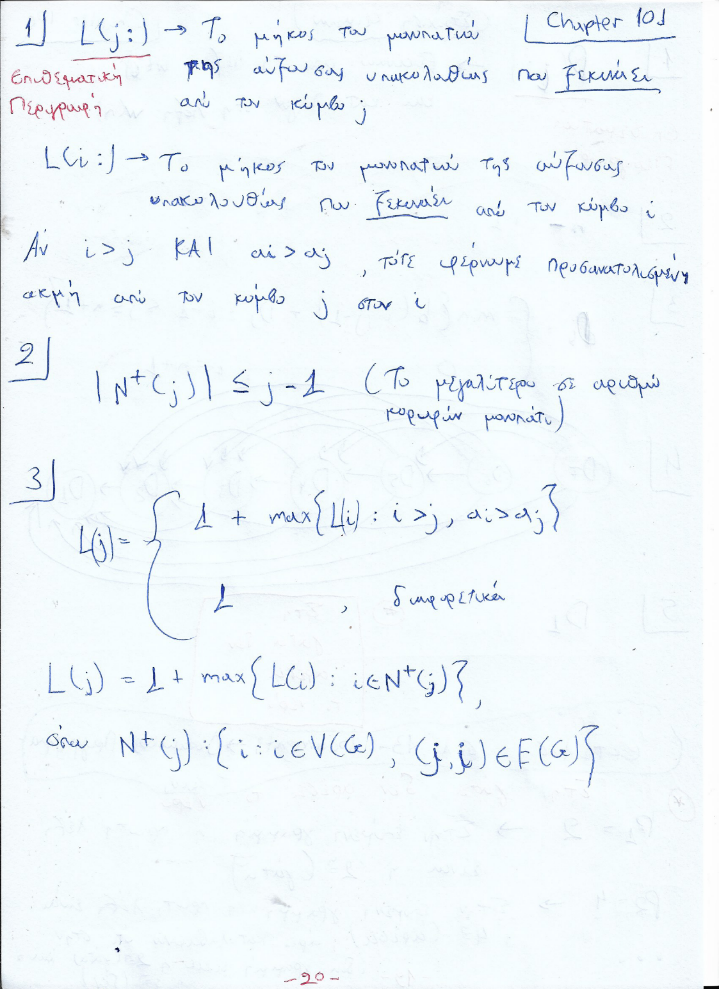 1 L(j:) → Το μήκος του μονοπατιού Chapter 10
Επιθεματική της αύξουσας υπακολουθίας που ξεκινάει
Περιγραφή από τον κόμβο j
L(i:) → Το μήκος του μονοπατιού της αύξουσας
υπακολουθίας που ξεκινάει από τον κόμβο i
Αν i > j ΚΑΙ ai > aj , τότε φέρνουμε προσανατολισμένη
ακμή από τον κόμβο j στον i
2 |N⁺(j)| ≤ j - 1 (Το μεγαλύτερο σε αριθμό
κορυφών μονοπάτι)
3
L(j) = { 1 + max{L(i) : i > j, ai > aj}
1 , διαφορετικά
L(j) = 1 + max{L(i) : i ∈ N⁺(j)},
όπου N⁺(j) : {i : i ∈ V(G) , (j, i) ∈ E(G)}
-20-